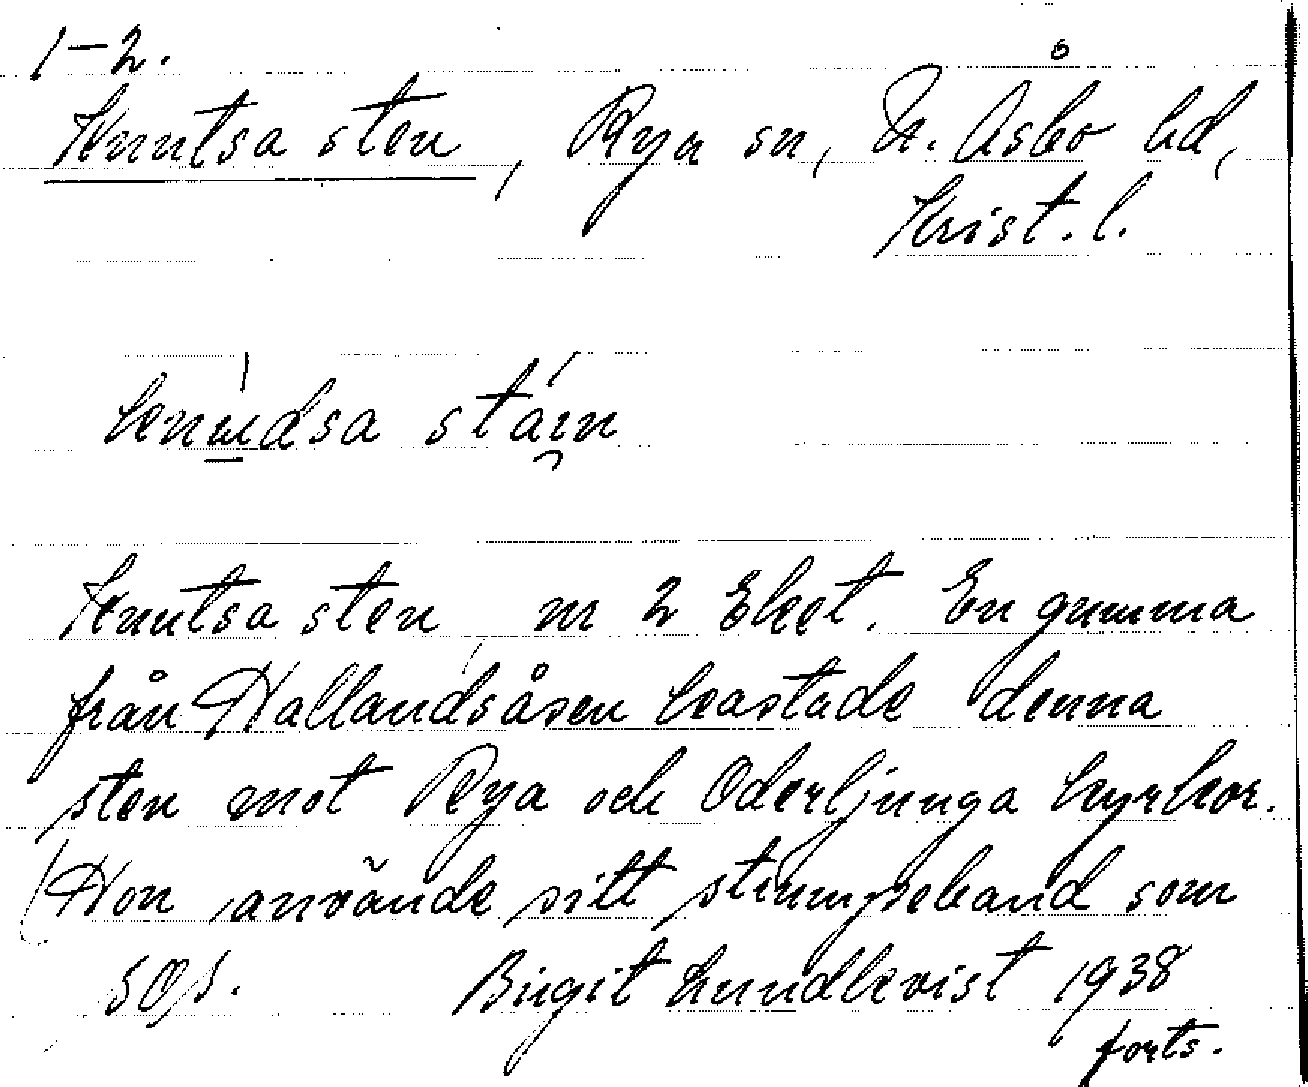 1-2.
Knutsa sten, Rya sn, N. Åsbo hd,
Krist. l.
knudsa stäin
Knutsa sten, nr 2 Eket. En gumma
från Hallandsåsen kastade denna
sten mot Rya och Oderljunga kyrkor.
Hon använde sitt strumpeband som
Birgit Lundkvist 1938
forts.